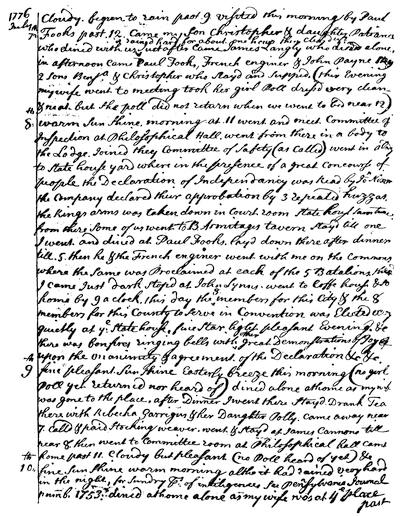 1776
July
7 Cloudy. begun to rain past 9 visited this morning by Paul
Fooks past 12 Came my son Christopher & daughter
it rained hard for about four hours they Stayd Tea
who dined with us just after Came James who dined alone,
in afternoon Came Paul Fooks, French enginer & John Payne
2 Sons Benja. & Christopher who Stayd and Supped (this Evening
my wife went to meeting took her girl Poll dressed very clean
& neat but the poll did not return when we went to bed near 12)
8. Warm Sun Shine, morning at 11 went and meet Committee of
Inspection at Philosophical Hall, went from there in a body to
the Lodge. Joined they Committee of Safety (as Called) went in a body
to State house yard where in the presence of a great Concourse of
people the Declaration of Independancy was read by Jo Nixon
the Company declared their approbation by 3 repeated huzzas.
the Kings arms was taken down in Court room State house
from there Some of us went to B. Armitages tavern Stayd till one
I went and dined at Paul Fooks, layd down there after dinner
till 5. then he & the French enginer went with me on the Commons
where the Same was Proclaimed at each of the 5 Batalions.
I came Just dark Stopd at John Lynns. went to Coffe house &
home by 9 aClock, this day the members for this City & the 8
members for this County to Serve in Convention was Elected very
quietly at ye. State house, fine Star light pleasant Evening. &
there was bonfires ringing bells with great demonstrations of Joy
upon the unanimity & agreement of the Declaration &c &c.
9 fine pleasant Sun Shine Easterly breeze this morning (no girl
Poll yet returned nor heard of) dined alone at home as my wife
was gone to the place, after Dinner I went there Stayd Drank Tea
there with Rebecha Garrigues & her Daughter Polly. Came away near
7. Calld & paid Stocking weaver. went & Stayd at James Cannons till
near 8 then went to Committee room at Philosophical hall came
home past 11. Cloudy but pleasant (no Poll heard of yet) &c
10. fine Sun Shine warm morning altho it had rained very hard
in the night, for Sundry of intelligences See Pensylvania Journal
numb. 1753. dined at home alone as my wife was at ye Place
past